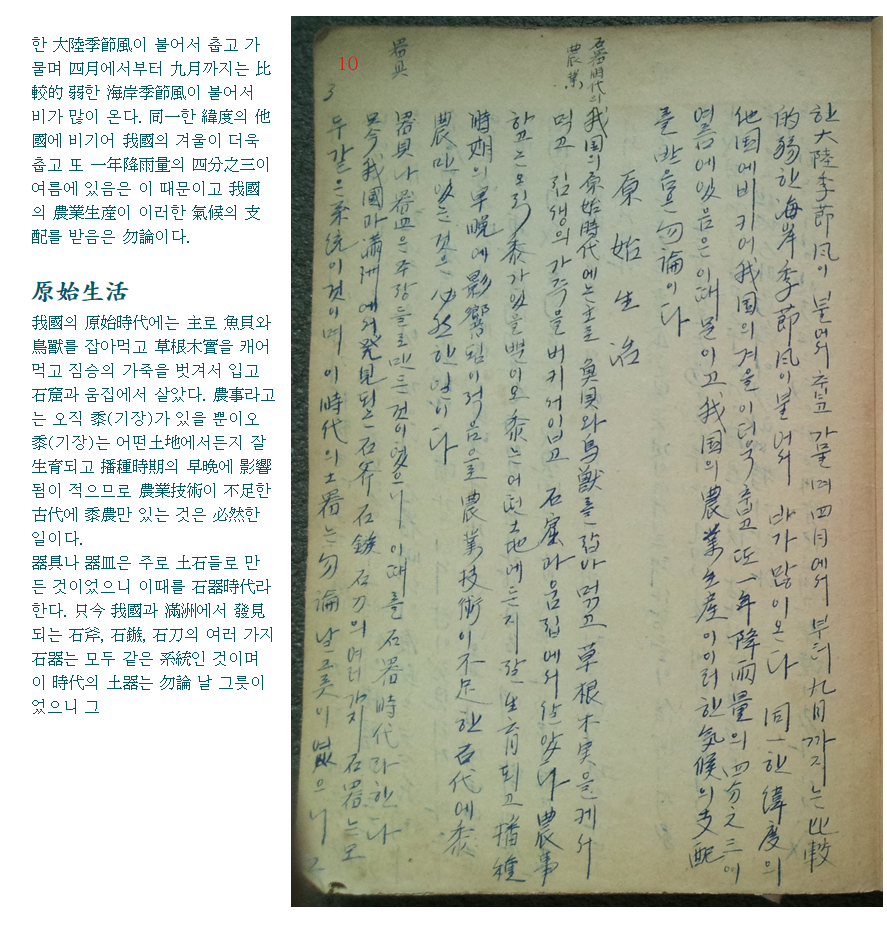 한 大陸季節風이 불어서 춥고 가
물며 四月에서부터 九月까지는 比
較的 弱한 海岸季節風이 불어서
비가 많이 온다. 同一한 緯度의 他
國에 비기어 我國의 겨울이 더욱
춥고 또 一年降雨量의 四分之三이
여름에 있음은 이 때문이고 我國
의 農業生産이 이러한 氣候의 支
配를 받음은 勿論이다.
原始生活
我國의 原始時代에는 主로 魚貝와
鳥獸를 잡아먹고 草根木實을 캐어
먹고 짐승의 가죽을 벗겨서 입고
石窟과 움집에서 살았다. 農事라고
는 오직 黍(기장)가 있을 뿐이오
黍(기장)는 어떤土地에서든지 잘
生育되고 播種時期의 早晩에 影響
됨이 적으므로 農業技術이 不足한
古代에 黍農만 있는 것은 必然한
일이다.
器具나 器皿은 주로 土石들로 만
든 것이었으니 이때를 石器時代라
한다. 只今 我國과 滿洲에서 發見
되는 石斧, 石鏃, 石刀의 여러 가지
石器는 모두 같은 系統인 것이며
이 時代의 土器는 勿論 날 그릇이
었으니 그
10
한大陸季節风이불어서춥고가물며四月에서부터九月까지는比較
的弱한海岸季節风이불어서비가많이온다 同一한緯度의
他国에비키어我国의겨울이더욱춥고또一年降雨量의四分之三이
여름에있음은이때문이고我国의農業生産이이러한気候의支配
를받음은勿論이다
原始生活
石器時代의
農業
我国의原始時代에는主로魚貝와鳥獸를잡아먹고草根木実을캐서
먹고짐생의가죽을버키서입고石窟과움집에서살았다農事
라고는오직黍가있을뿐이오黍는어떤土地에든지잘生育되고播種
時期의早晩에影響됨이적음으로農業技術이不足한古代에黍
農만있는것은必然한일이다
器具
器具나器皿은주장돌로만든것이었으니이때를石器時代라한다
只今我国과満洲에서発見되는石斧石鏃石刀의여러가지石器는모
두같은系統이것이며이時代의土器는勿論날그릇이였으니그
3